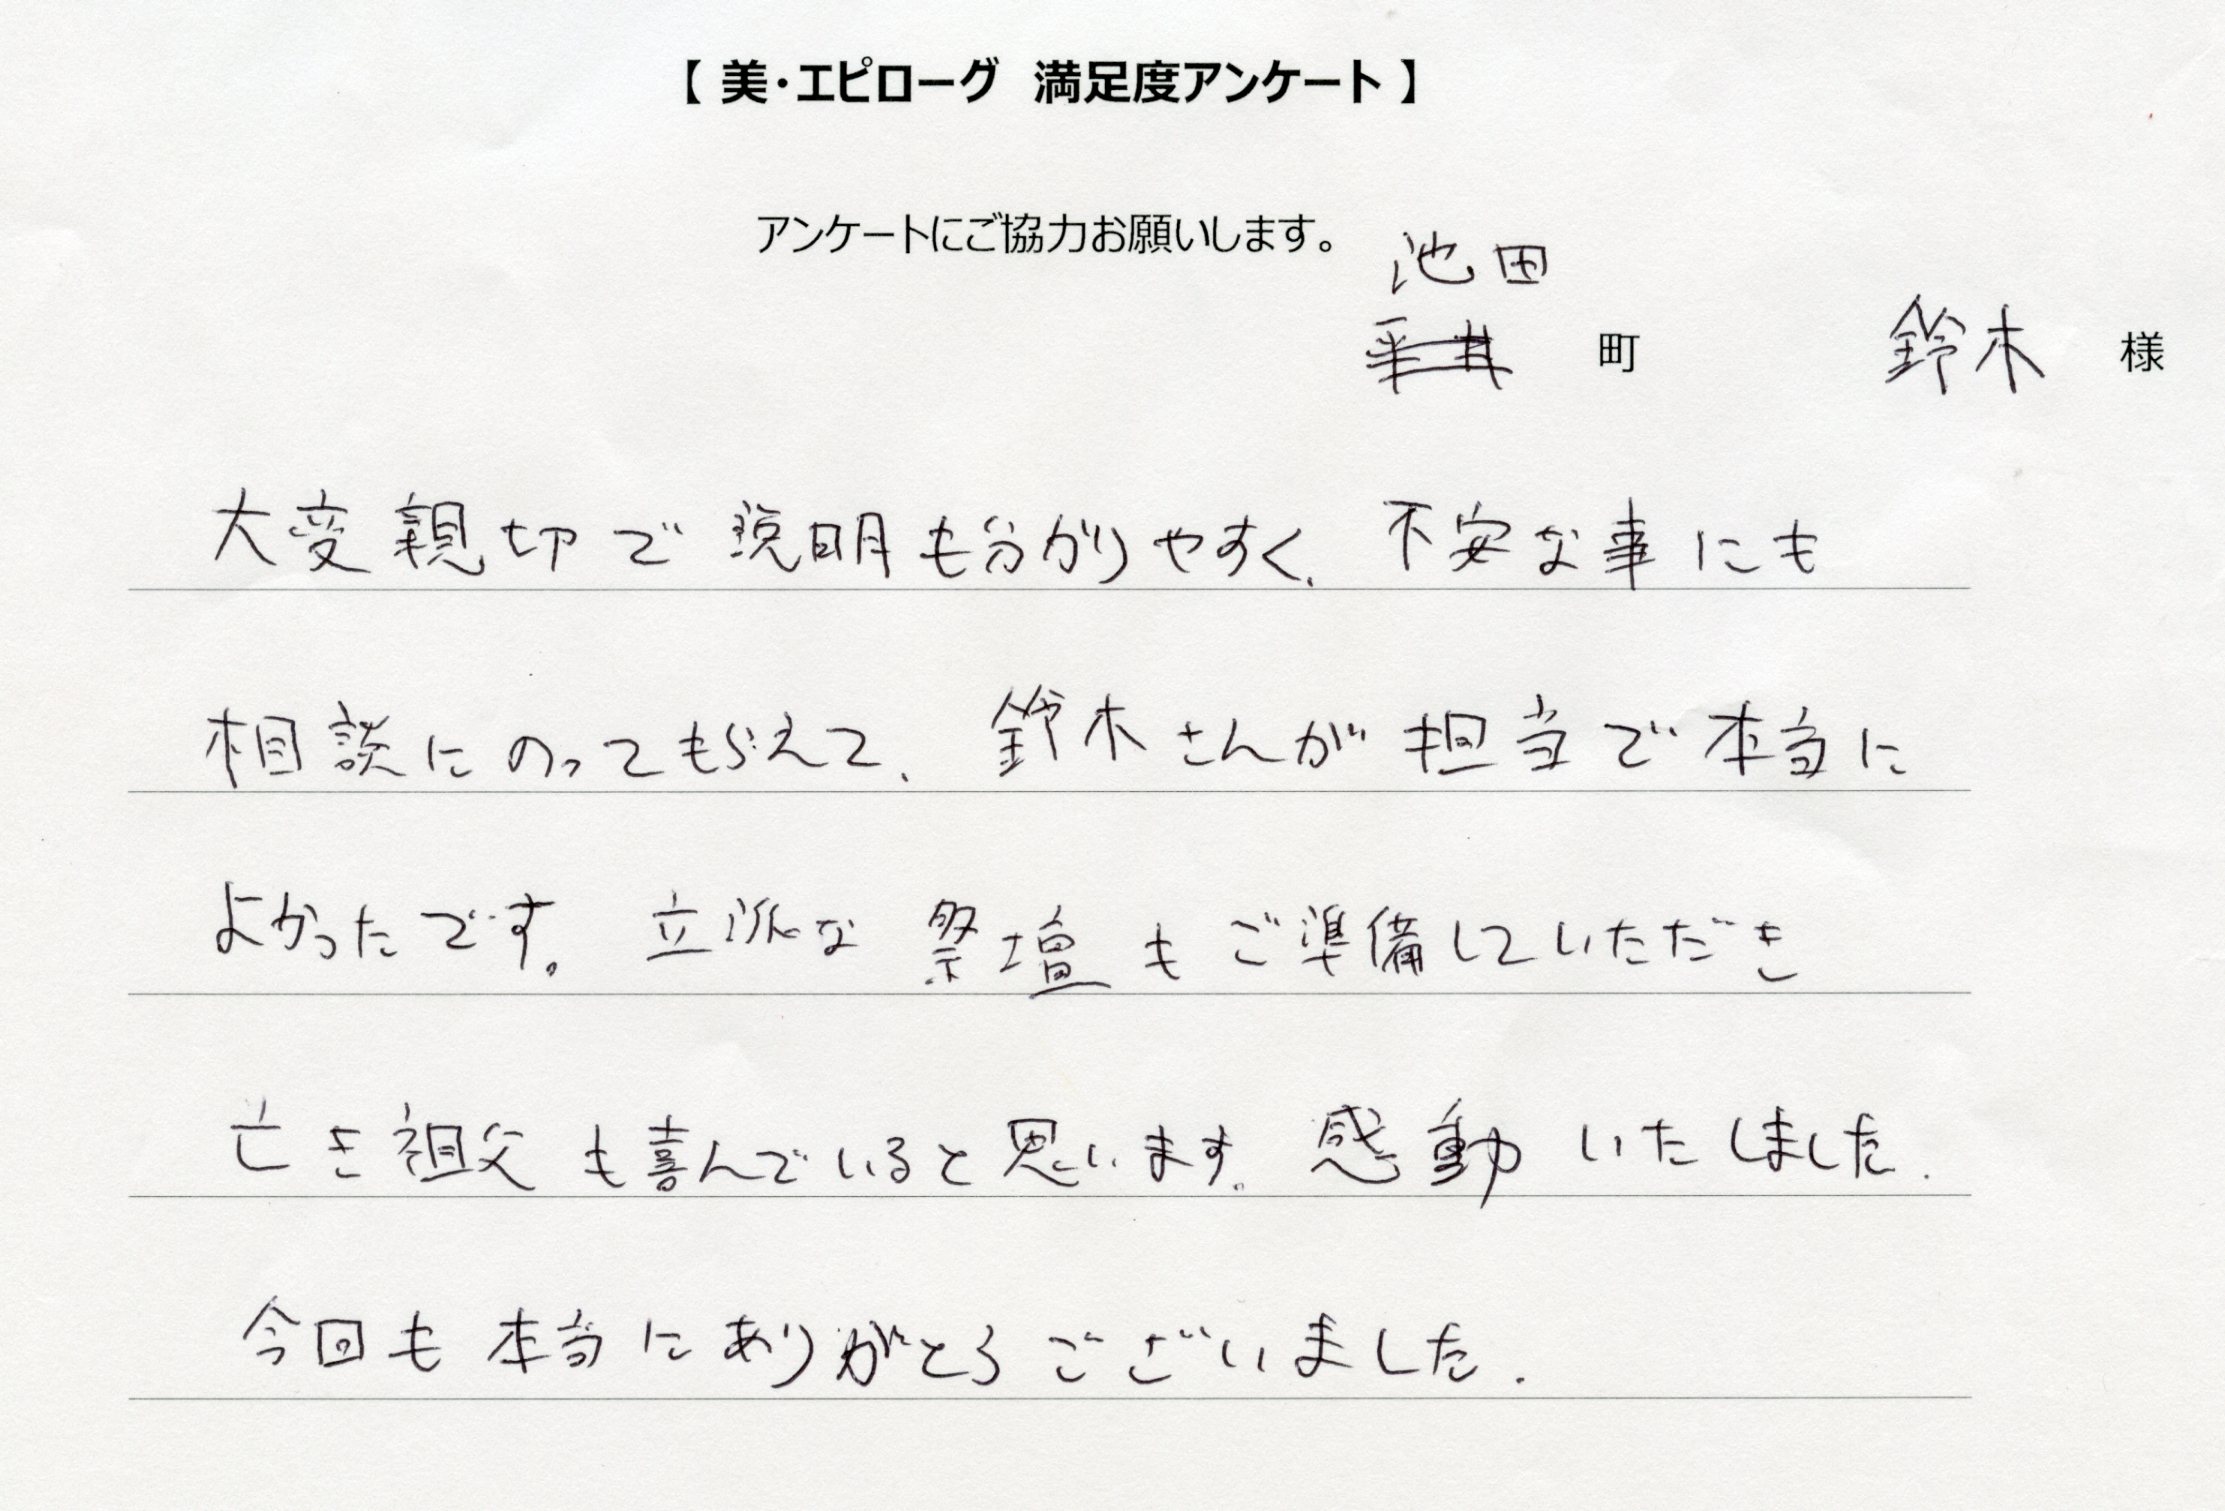 【 美・エピローグ　満足度アンケート 】
アンケートにご協力お願いします。
池田
平井 町 鈴木 様
大変親切で説明も分かりやすく、不安な事にも
相談にのってもらえて、鈴木さんが担当で本当に
よかったです。立派な祭壇もご準備していただき
亡き祖父も喜んでいると思います。感動いたしました.
今回も本当にありがとうございました.